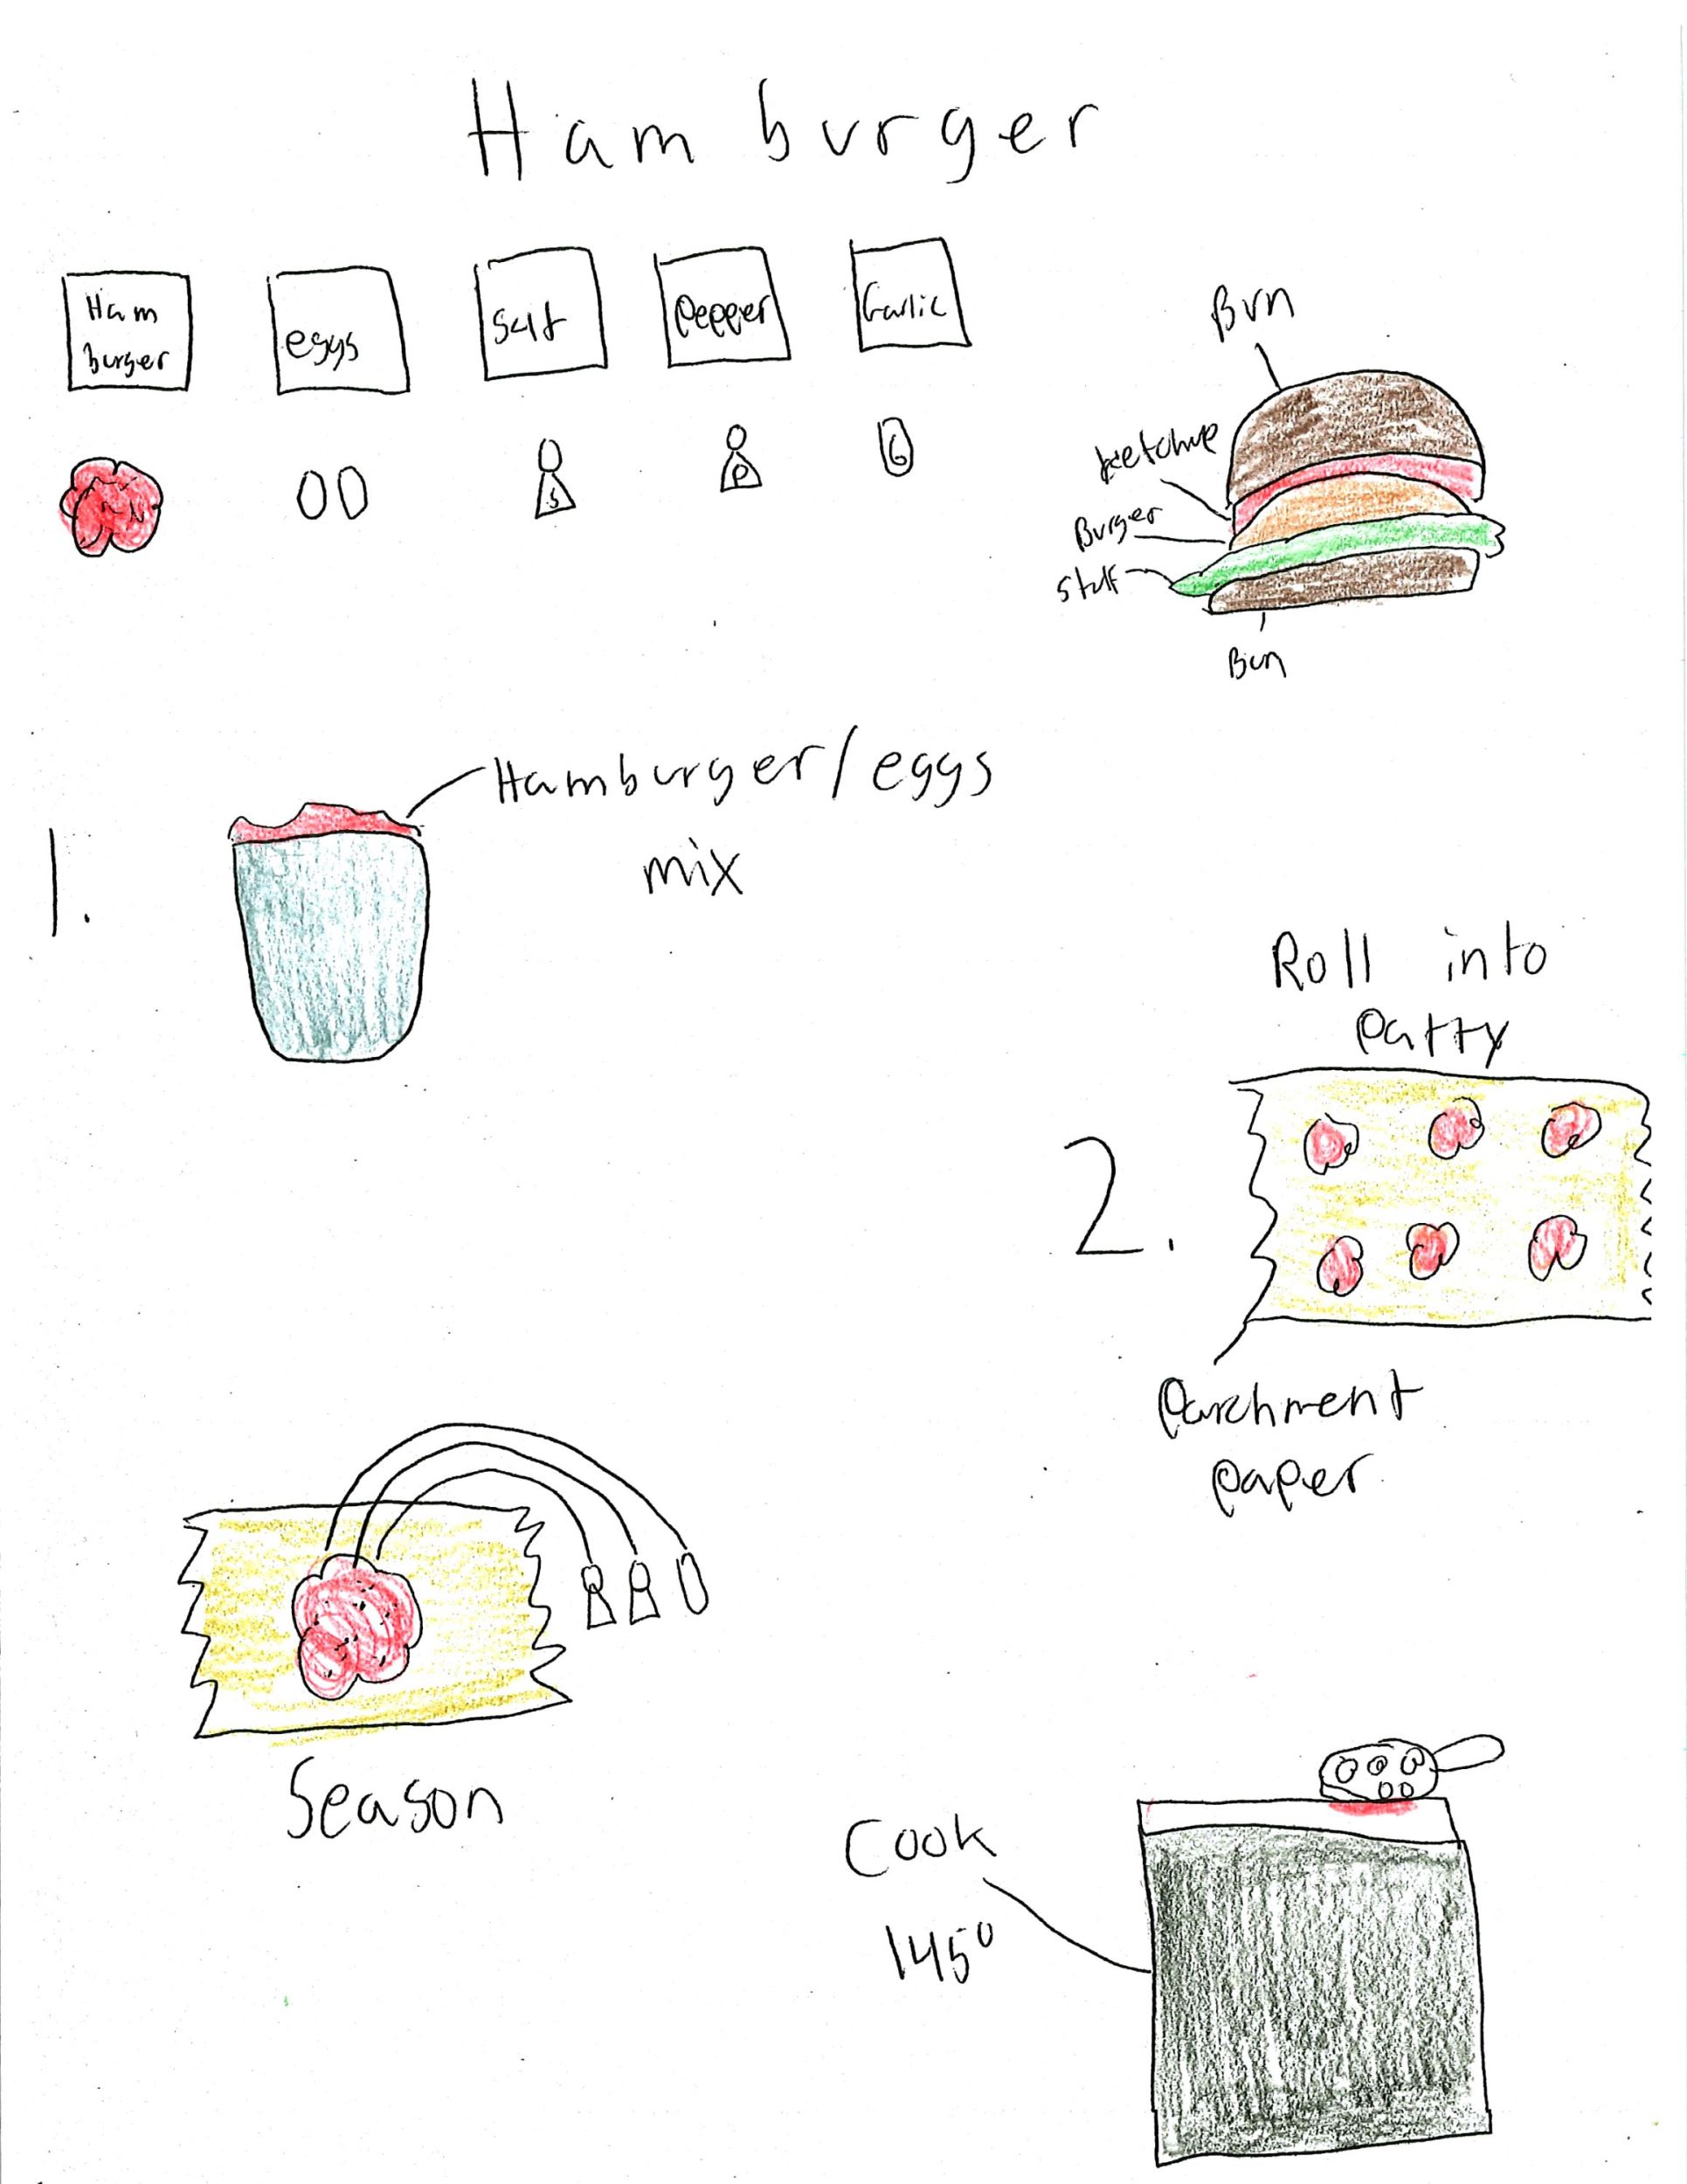 Hamburger
Ham
burger
eggs
Salt
Pepper
Garlic
S
P
G
Bun
ketchup
Burger
stuff
Bun
1.
Hamburger/eggs
mix
Roll into
Patty
2.
Parchment
paper
Season
Cook
145°